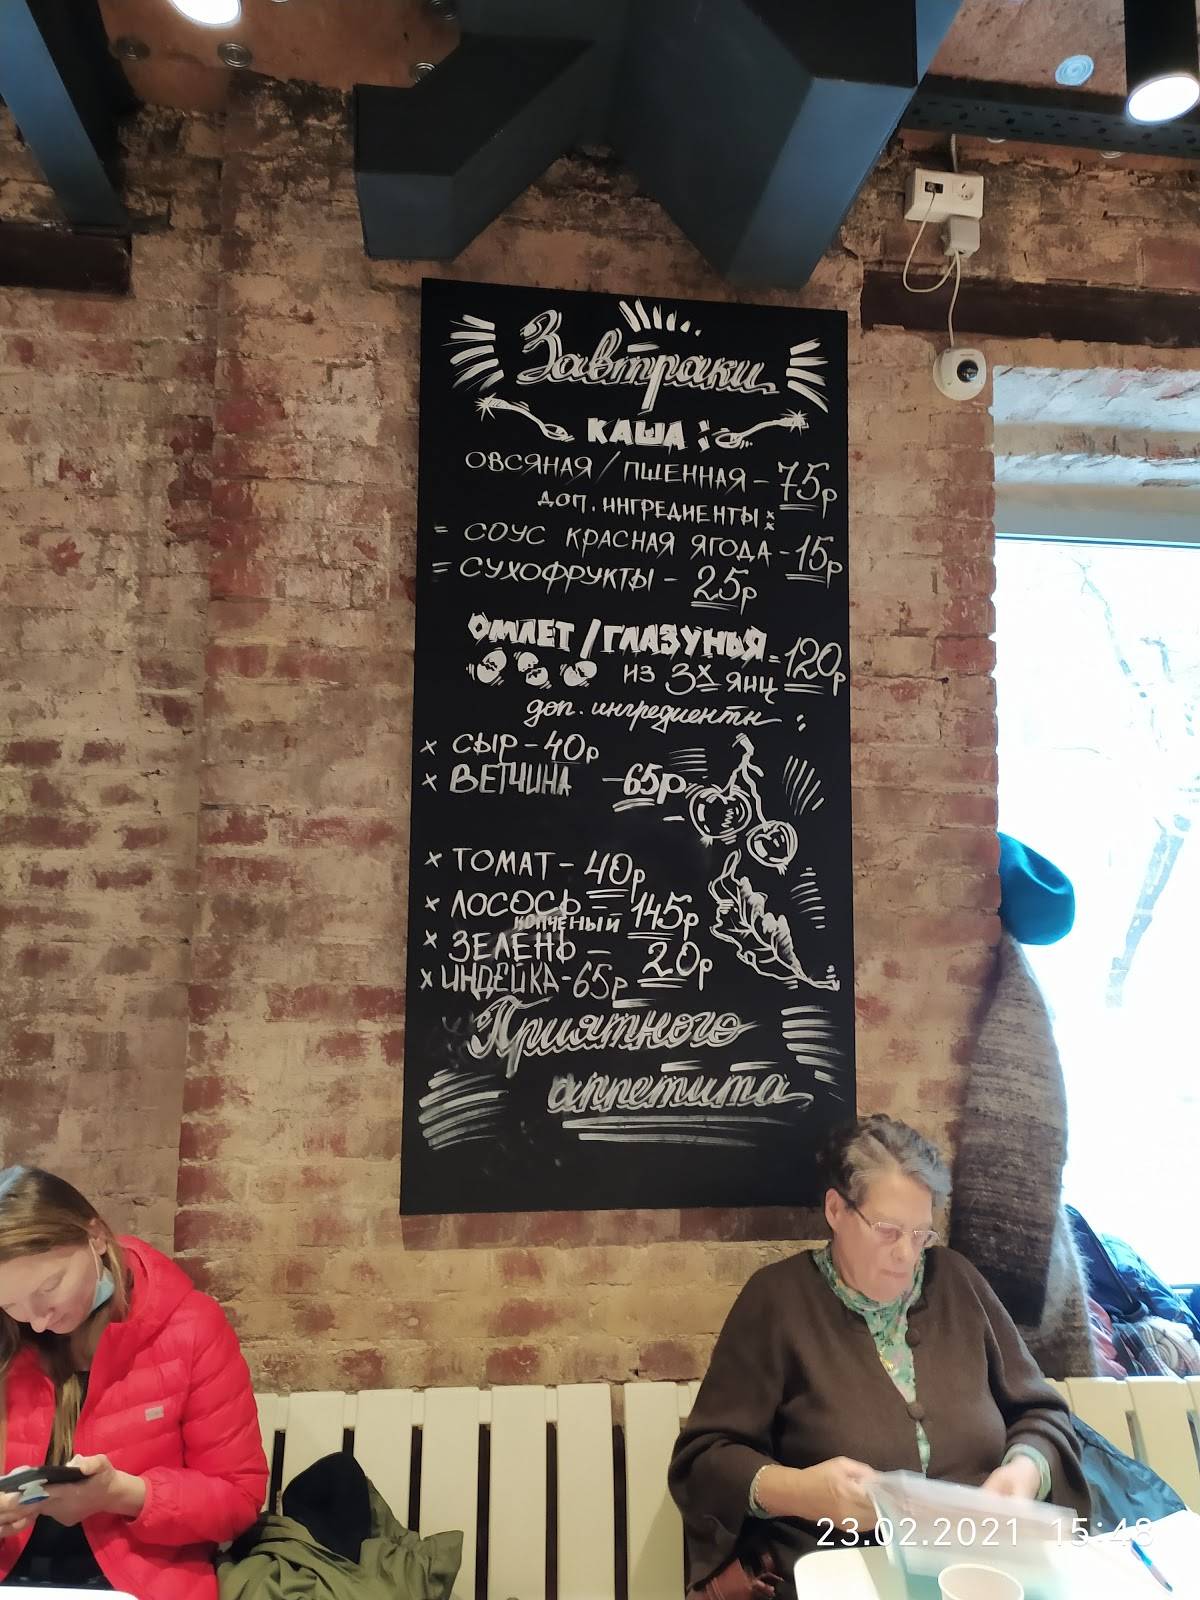 Завтраки
КАША :
ОВСЯНАЯ / ПШЕННАЯ - 75р
ДОП. ИНГРЕДИЕНТЫ :
= СОУС КРАСНАЯ ЯГОДА - 15р
= СУХОФРУКТЫ - 25р
ОМЛЕТ / ГЛАЗУНЬЯ
из 3х яиц = 120р
доп. ингредиенты :
x СЫР - 40р
x ВЕТЧИНА - 65р
x ТОМАТ - 40р
x ЛОСОСЬ - 145р
КОПЧЕНЫЙ
x ЗЕЛЕНЬ - 20р
x ИНДЕЙКА - 65р
Приятного
аппетита
23.02.2021 15:48